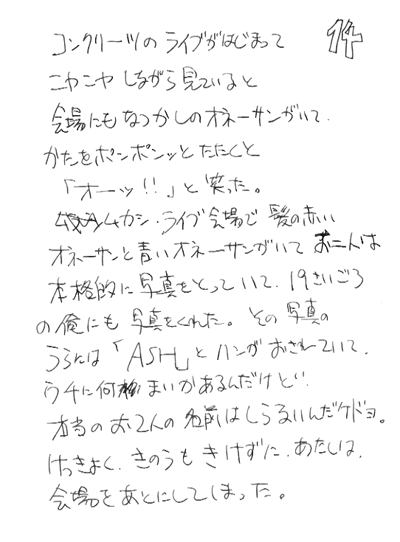 コンクリーツの ライブがはじまって
ニヤニヤ しながら見ていると
会場にもなつかしのオネーサンがいて、
かたをポンポンッとたたくと
「オーッ!!」と笑った。
ムカシ・ライブ会場で 髪の赤い
オネーサンと青いオネーサンがいて お二人は
本格的に写真をとっていて、19さいごろ
の俺にも写真をくれた。その写真の
うらには「ASH」とハンがおされていて、
ウチに何枚かあるんだけど、
本当のお2人の名前はしらないんだケドヨ。
けっきょく、きのうもきけずに、あたしは、
会場をあとにしてしまった。